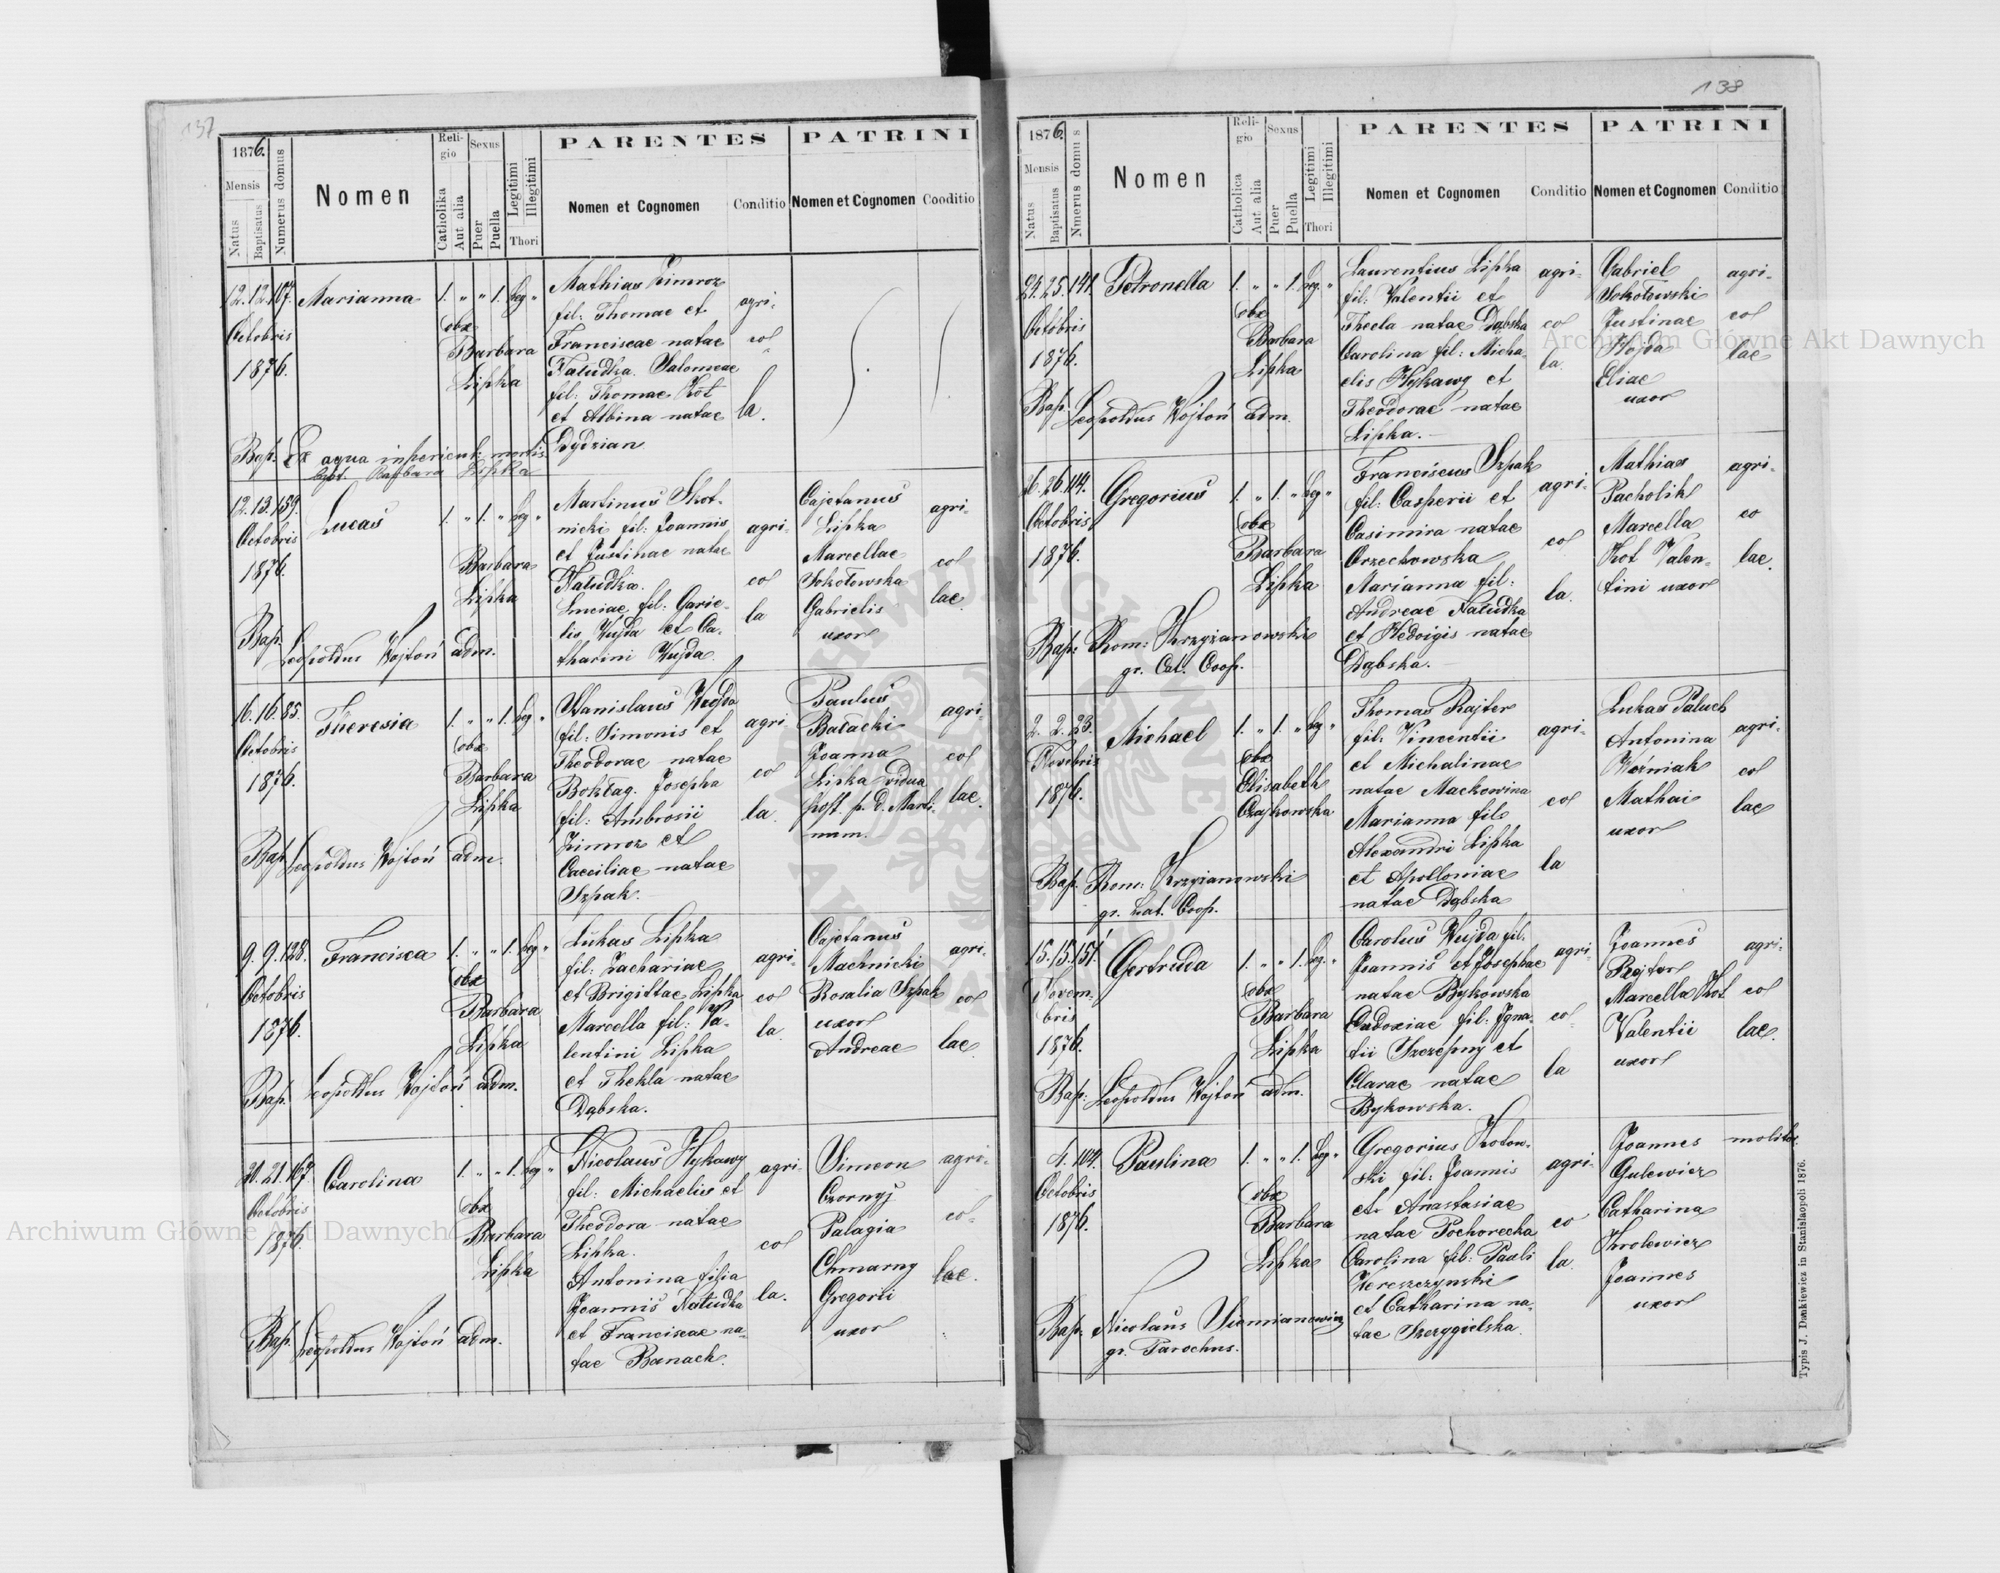 137
1876.
Mensis
Natus
Baptisatus
Numerus domus
Nomen
Religio
Catholika
Aut alia
Sexus
Puer
Puella
Legitimi
Illegitimi
Thori
PARENTES
Nomen et Cognomen
Conditio
PATRINI
Nomen et Cognomen
Cooditio
12. 12. 107. Marianna 1. " " 1. leg "
Octobris
1876.
obx
Barbara
Lipka
Mathias Zimroz
fil: Thomae et
Franciscae natae
Natudka. Salomeae
fil: Thomae Kot
et Albina natae
Dydzian
agri-
col
la.
Bap. Ex aqua in periculo mortis
Barbara Lipka
12. 13. 159. Lucas 1. " 1. " leg "
Octobris
1876.
Barbara
Lipka
Martinus Skot-
nicki fil: Joannis
et Justinae natae
Natudka.
Luciae fil: Garie-
lis Wujda et Ca-
tharini Wujda
agri-
col
la
Cajetanus
Lipka
Marcellae
Sokołowska
Gabrielis
uxor
agri-
col
lae
Bap. Leopoldus Wojtoń adm.
16. 16. 85. Theresia 1. " " 1. leg "
Octobris
1876.
obx
Barbara
Lipka
Stanislaus Wujda
fil: Simonis et
Theodorae natae
Boktag. Josepha
fil: Ambrosii
Zimroz et
Caeciliae natae
Szpak.
agri-
col
la.
Paulus
Bałacki
Joanna
Lipka vidua
post p. d. Marti-
num.
agri-
col
lae.
Bap. Leopoldus Wojtoń adm.
9. 9. 128. Francisca 1. " " 1. leg "
Octobris
1876.
obx
Barbara
Lipka
Lukas Lipka
fil: Zachariae
et Brigittae Lipka
Marcella fil: Va-
lentini Lipka
et Thekla natae
Dąbska.
agri-
col
la
Cajetanus
Machnicki
Rosalia Szpak
uxor
Andreae
agri-
col
lae
Bap. Leopoldus Wojtoń adm.
21. 21. 167. Carolina 1. " " 1. leg "
Octobris
1876.
obx
Barbara
Lipka
Nicolaus Hykawy
fil: Michaelis et
Theodora natae
Lipka.
Antonina filia
Joannis Natudka
et Franciscae na-
tae Banach.
agri-
col
la.
Simeon
Czornyj
Palagia
Chmarny
Gregorii
uxor
agri-
co-
lae.
Bap. Leopoldus Wojtoń adm.
138
1876.
Mensis
Natus
Baptisatus
Nmerus domus
Nomen
Religio
Catholica
Aut alia
Sexus
Puer
Puella
Legitimi
Illegitimi
Thori
PARENTES
Nomen et Cognomen
Conditio
PATRINI
Nomen et Cognomen
Conditio
24. 25. 141. Petronella 1. " " 1. leg. "
Octobris
1876.
obx
Barbara
Lipka
Laurentius Lipka
fil: Valentii et
Thecla natae Dąbska
Carolina fil: Micha-
elis Hykawy et
Theodorae natae
Lipka.
agri-
col
la.
Gabriel
Sokołowski
Justinae
Wojda
Eliae
uxor
agri-
col
lae
Bap. Leopoldus Wojtoń adm.
26. 114. Gregorius 1. " 1. " leg "
Octobris
1876.
obx
Barbara
Lipka
Franciscus Szpak
fil: Casperii et
Casimira natae
Orzechowska
Marianna fil:
Andreae Natudka
et Hedvigis natae
Dąbska.
agri-
col
la.
Mathias
Pacholik
Marcella
Kot Valen-
tini uxor
agri-
co
lae.
Bap: Rom: Krzyżanowski
gr. Cat. Coop.
2. 2. 23. Michael 1. " 1. " leg "
Novbris
1876.
obx
Elisabeth
Czajkowska
Thomas Rajter
fil: Vincentii
et Michalinae
natae Mackowina
Marianna fil
Alexandri Lipka
et Apolloniae
natae Dąbska
agri-
col
la
Lukas Paluch
Antonina
Woźniak
Mathai
uxor
agri-
col
lae
Bap. Rom: Krzyżanowski
gr. Cat. Coop.
15. 15. 151. Gertruda 1. " " 1. leg. "
Novem-
bris
1876.
obx
Barbara
Lipka
Carolus Wujda fil.
Joannis et Josephae
natae Bykowska
Eudoxiae fil: Igna-
tii Szczepny et
Clarae natae
Bykowska.
agri-
col-
la
Joannes
Rajter
Marcella Kot
Valentii
uxor
agri-
col
lae.
Bap: Leopoldus Wojtoń adm.
4. 104. Paulina 1. " " 1. leg "
Octobris
1876.
obx
Barbara
Lipka
Gregorius Kotow-
ski fil: Joannis
et Anastasiae
natae Pochorecka
Carolina fil: Pauli
Wereszczynski
et Catharina na-
tae Szczygielska.
agri-
co
la.
Joannes
Gulewicz
Catharina
Krolewicz
Joannes
uxor
molitor
Bap: Nicolaus Siemianowicz
gr. Parochus.
Typis J. Dankiewicz in Stanislaopoli 1876.
Archiwum Główne Akt Dawnych
Archiwum Główne Akt Dawnych
ARCHIWUM GŁÓWNE AKT DAWNYCH